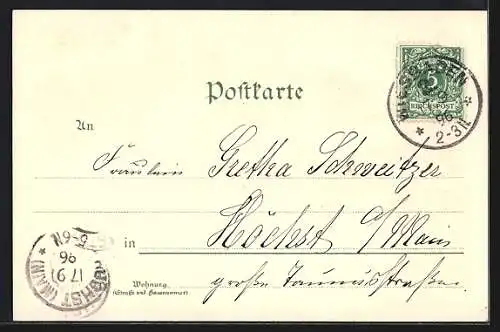 Postkarte
5
REICHSPOST
WIESBADEN
96
2-3N
An
Fräulein Gretha Schweitzer
in Höchst a/Main
Wohnung
(Straße und Hausnummer)
große Taunusstraße
HÖCHST (MAIN)
17 9
96
5-6N